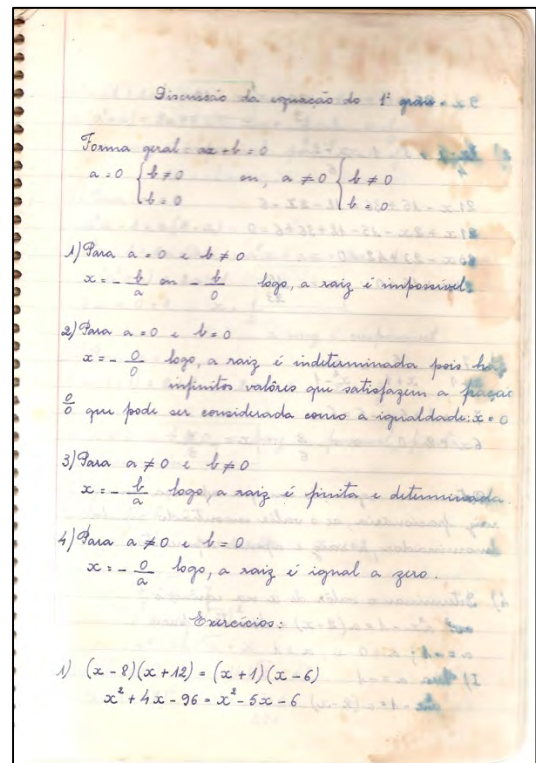 Discussão da equação do 1º grau
Forma geral = ax + b = 0
a = 0 { b ≠ 0 ou, a ≠ 0 { b ≠ 0
b = 0 b = 0
1) Para a = 0 e b ≠ 0
x = - b/a ou - b/0 logo, a raiz é impossível.
2) Para a = 0 e b = 0
x = - 0/0 logo, a raiz é indeterminada pois há
infinitos valôres que satisfazem a fração
0/0 que pode ser considerada como a igualdade: x = 0
3) Para a ≠ 0 e b ≠ 0
x = - b/a logo, a raiz é finita e determinada.
4) Para a ≠ 0 e b = 0
x = - 0/a logo, a raiz é igual a zero.
Exercícios:
1) (x - 8)(x + 12) = (x + 1)(x - 6)
x² + 4x - 96 = x² - 5x - 6